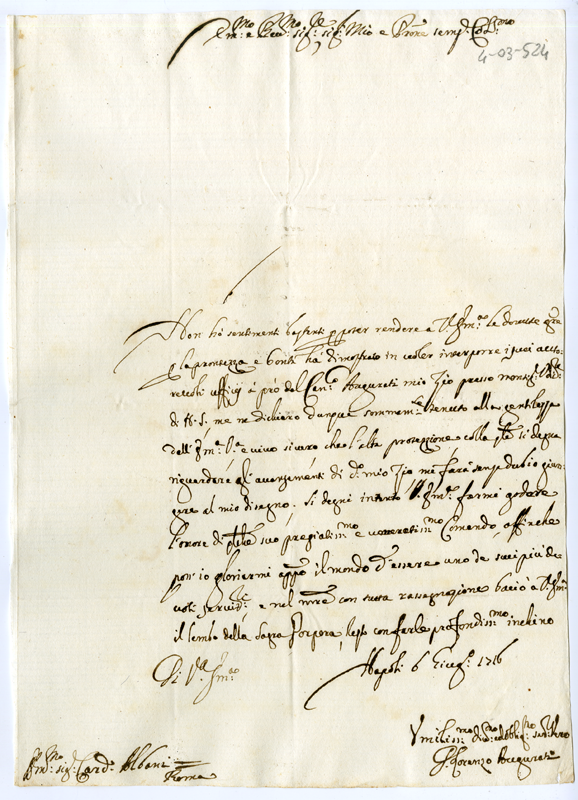 Em.mo e Reu.mo sig.r sig.r Mio e Prone semp. Col.mo
4-03-524
Non hò sentimenti bastanti p poter rendere à V. Em.za le dovute
p la prontezza e bontà hà dimostrato in voler interporre i suoi auto-
revoli ufficij à prò del Can.co mio Zio presso monsig.
di N. S. me ne dichiaro dunque sommam.te tenuto alla gentilezza
dell' Em.za V.a e vivo sicuro che l'alta protezzione colla q.le si degna
riguardare gli avanzamenti di d.o mio Zio mi farà senza dubio giun-
gere al mio disegno. Si degni intanto V. Em.za farmi godere
l'onore di q.lche suo pregiatiss.mo e veneratiss.mo Comando, affinche
poss' io gloriarmi app.o il mondo d'essere uno de suoi più de-
voti servid.ri e nel m̃re con tutta rassegnazione bacio à V. Em.za
il lembo della Sagra Porpora, con farle profondiss.mo inchino
Di V.a Em.za
Napoli 6 Giug.o 1716
Vmiliss.mo div.mo ed obblig.mo servid.re vero
Lorenzo
Em.mo sig.r Card. Albani = Roma